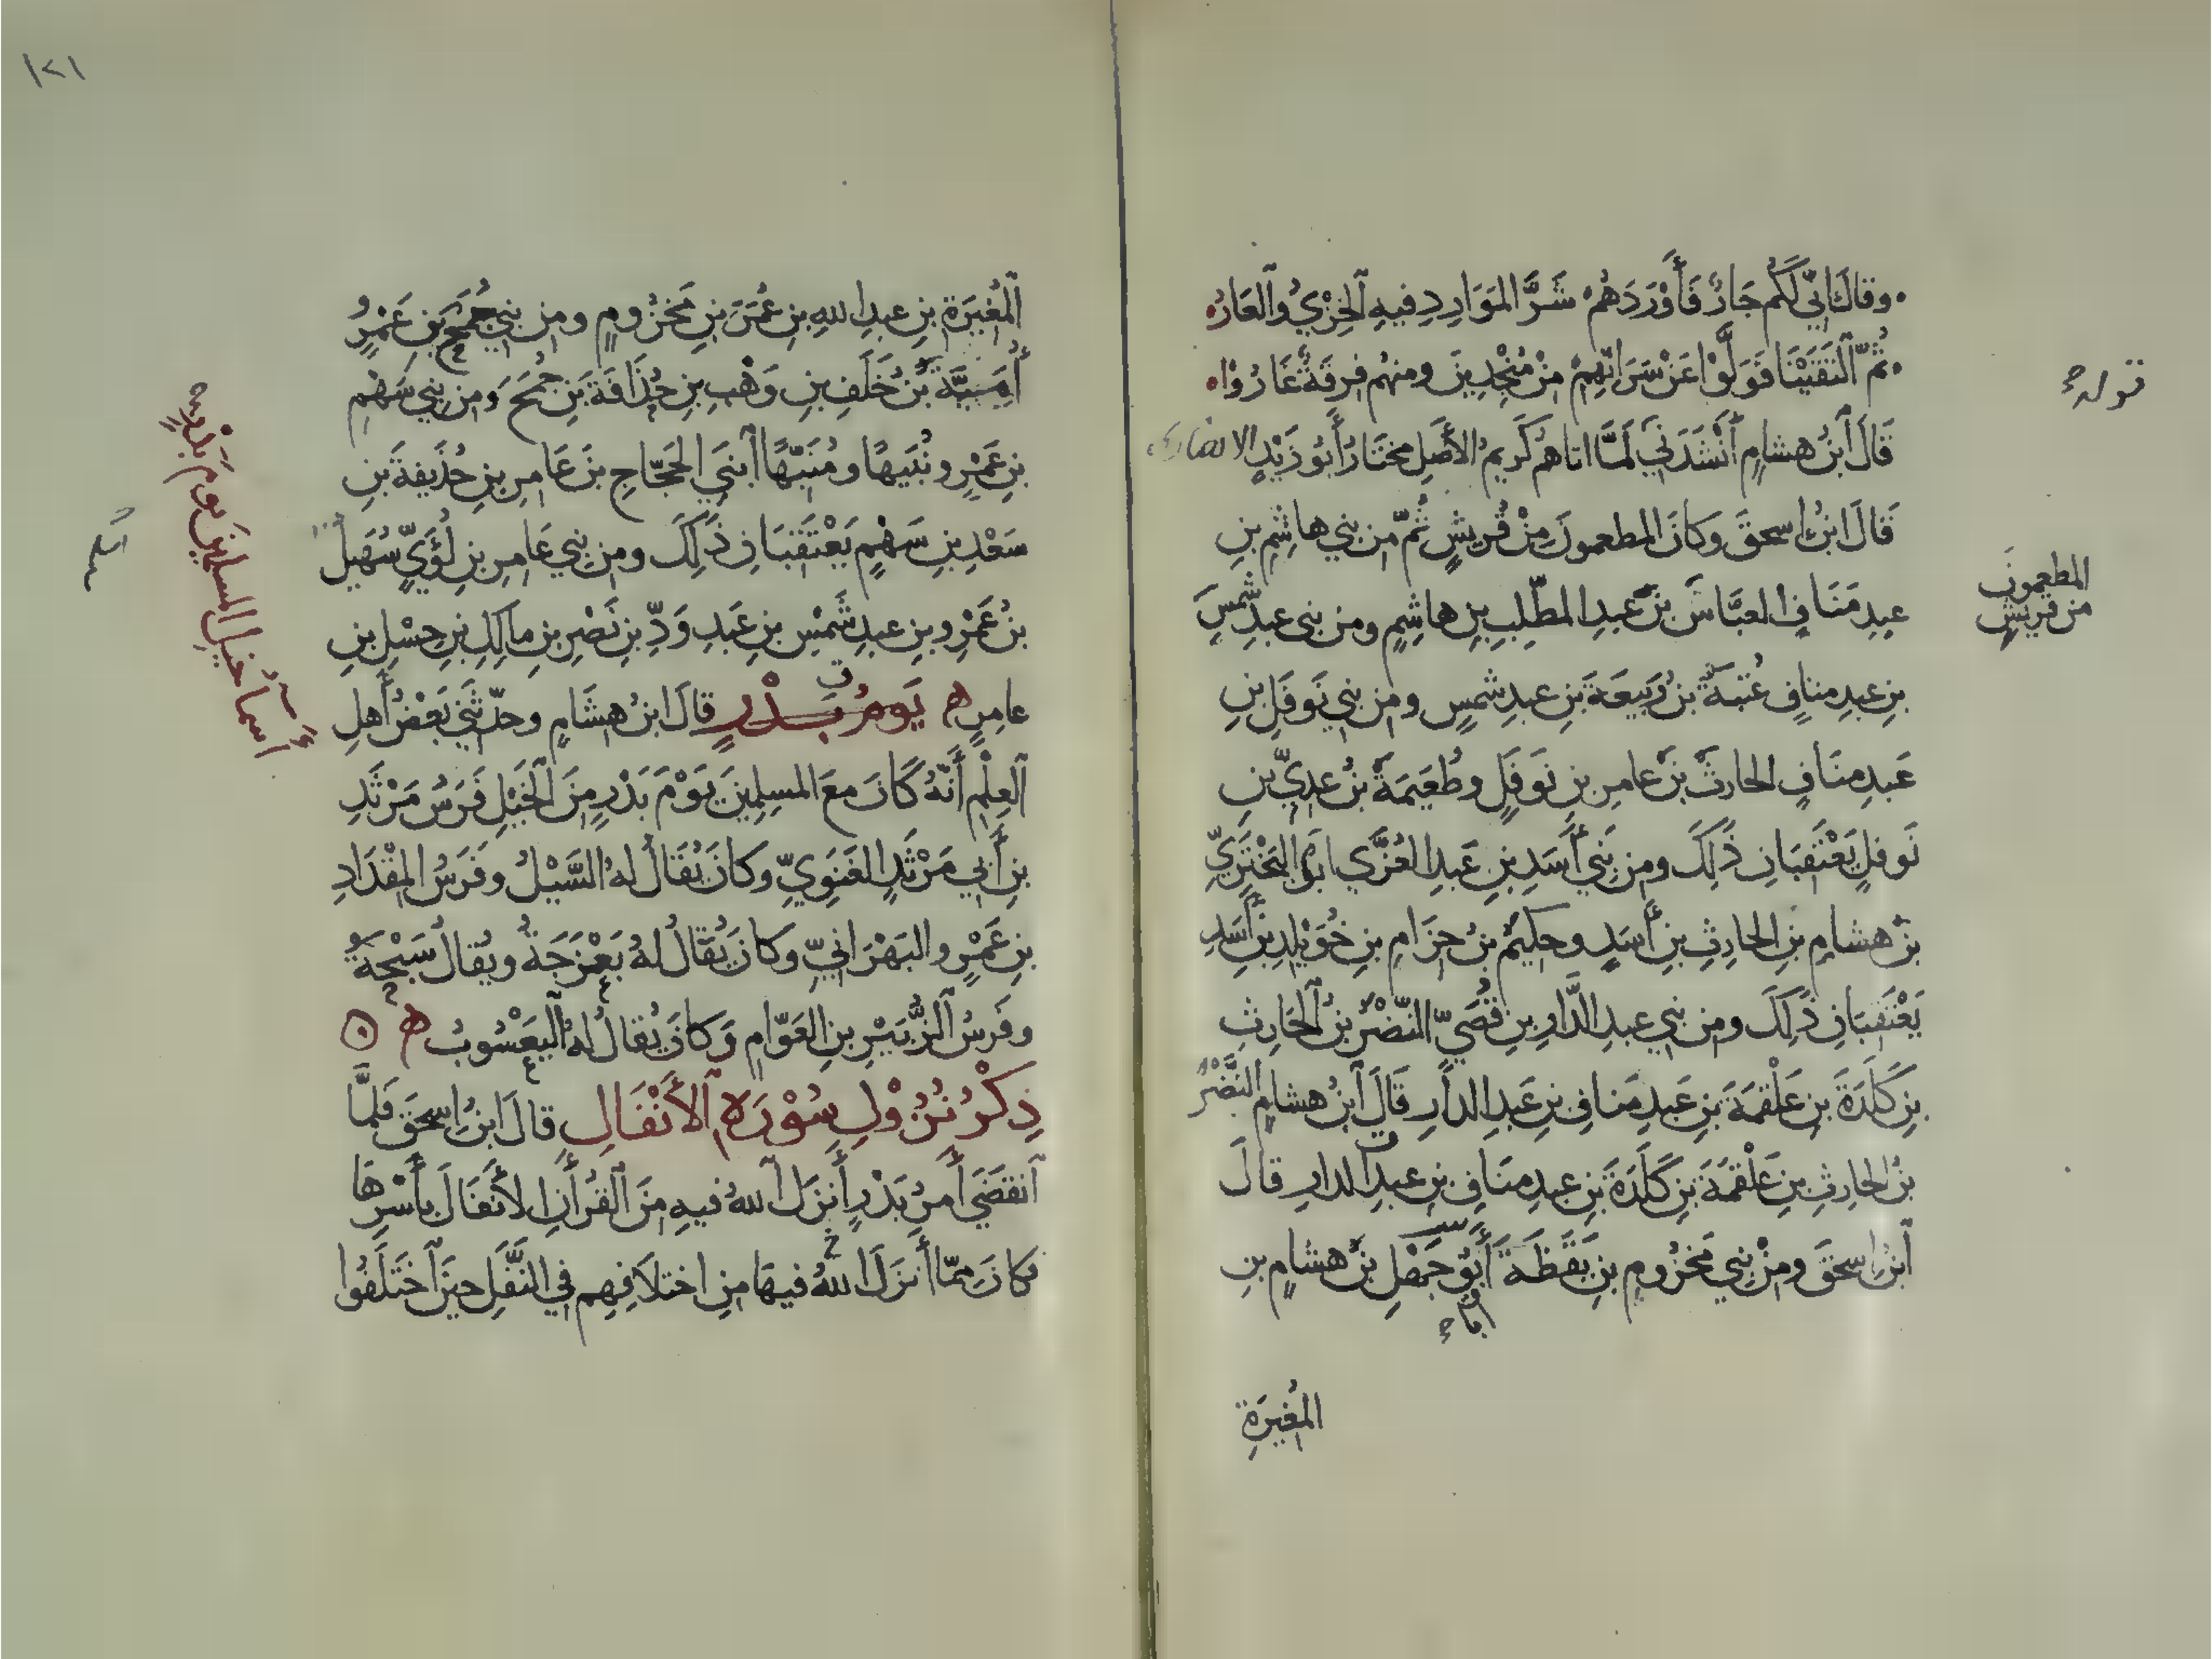 وقالَ اِنّي لَكُم جَارٌ فَأَوْرَدَهُمْ شَرَّ المَوَارِدِ فيهِ الخِزْيُ وَالعَارُ
ثُمَّ الْتَقَيْنَا فَوَلَّوْا عَنْ سَرَاتِهِمْ مِنْ مُنْجِدِينَ ومنهُم فِرقَةٌ غَارُوْا
قَالَ ابنُ هشامٍ أَنْشَدَنِي لَمَّا اتاهم كَرِيمُ الأَصلِ مختَارُ أَبُو زَيْدٍ الانصاري
قَالَ ابنُ اِسحقَ وَكانَ المطعمونَ مِنْ قُريشٍ ثُمّ من بني هاشِمِ بنِ
المطعمونَ من قريشٍ
عبدِ مَنَافٍ العبَّاسُ بنُ عبدِ المطّلِبِ بنِ هاشِمٍ ومن بني عبدِ شمسِ
بنِ عبدِ منافٍ عُتبَةُ بنُ رَبيعَةَ بنِ عبدِ شمسٍ ومن بني نَوفَلِ بنِ
عَبدِ منَافٍ الحارثُ بنُ عامرِ بنِ نَوفَلٍ وطُعَيمَةُ بنُ عديِّ بنِ
نَوفلٍ يَعْتَقِبَانِ ذٰلِكَ ومن بَنِي أَسَدِ بنِ عَبدِ العُزَّي ابو البَخْتَرِيِّ
بنُ هشامِ بنِ الحارِثِ بنِ أَسَدٍ وحكيمُ بنُ حِزَامِ بنِ خُوَيلِدِ بنِ أَسَدٍ
يَعْتَقِبَانِ ذٰلِكَ ومن بني عبدِ الدَّارِ بنِ قُصَيّ النّضْرُ بنُ الحَارثِ
بنِ كَلَدَةَ بنِ عَلْقَمَةَ بنِ عَبدِ مَنافِ بنِ عَبدِ الدارِ قَالَ ابنُ هشامٍ النَّضْرُ
بنُ الحارِثِ بنِ عَلْقَمَةَ بنِ كَلَدَةَ بنِ عبدِ منَافِ بنِ عبدِ الدارِ قالَ
ابنُ اِسحقَ ومنْ بني مَخزُومِ بنِ يَقَظَةَ أَبُو جَهْلِ بنُ هشامِ بنِ
المُغيرَةِ
١٢١
المُغِيرَةِ بنِ عبدِ اللهِ بنِ عُمَرَ بنِ مَخزُومٍ ومن بَني جُمَحِ بنِ عَمْرٍو
أُمَيَّةُ بنُ خَلَفِ بنِ وَهْبِ بنِ حُذَافَةَ بنِ جُمَحَ وَمن بني سَهْمِ
بنِ عَمْرٍو نُبَيهًا ومُنَبّهًا ابني الحَجّاجِ بنِ عَامرِ بنِ حُذَيفةَ بنِ
سَعْدِ بنِ سَهْمٍ يَعْتَقِبَانِ ذٰلِكَ ومن بني عَامرِ بنِ لُؤَيٍّ سُهَيلُ
بنُ عَمْرِو بنِ عبدِ شَمْسِ بنِ عَبدِ وَدِّ بنِ نَصْرِ بنِ مالِكِ بنِ حِسْلِ بنِ
عامرٍ يَومُ بَدْرٍ قالَ ابنُ هشَامٍ وحدّثَني بَعضُ أَهلِ
أَسمآءُ خيلِ المسلمينَ يومَ بَدْرٍ
العِلْمِ أَنّهُ كَانَ معَ المسلِمِينَ يَوْمَ بَدْرٍ مِنَ الخَيْلِ فَرَسُ مَرْثَدِ
بنِ أَبي مَرْثَدٍ الغَنَوِيِّ وكانَ يُقَالُ لهُ السَّيْلُ وفَرَسُ المِقْدَادِ
بنِ عَمْرٍو البَهْرَانيِّ وَكانَ يُقَالُ لهُ بَعْزَجَةُ ويُقالُ سَبْحَةُ
وفَرَسُ الزُّبَيْرِ بنِ العَوّامِ وَكانَ يُقالُ لهُ اليَعْسُوبُ
ذِكْرُ نُزُوْلِ سُوْرَةِ الأَنْفَالِ قالَ ابنُ اِسحَقَ فلمَّا
انقَضَي أَمرُ بَدْرٍ أَنزَلَ اللهُ فيهِ منَ القُرأنِ الأَنفَالَ بأَسْرِهَا
فكانَ ممّا أَنزَلَ اللهُ فيهَا منِ اختلاَفِهِم في النَّفَلِ حينَ اختَلَفُوا